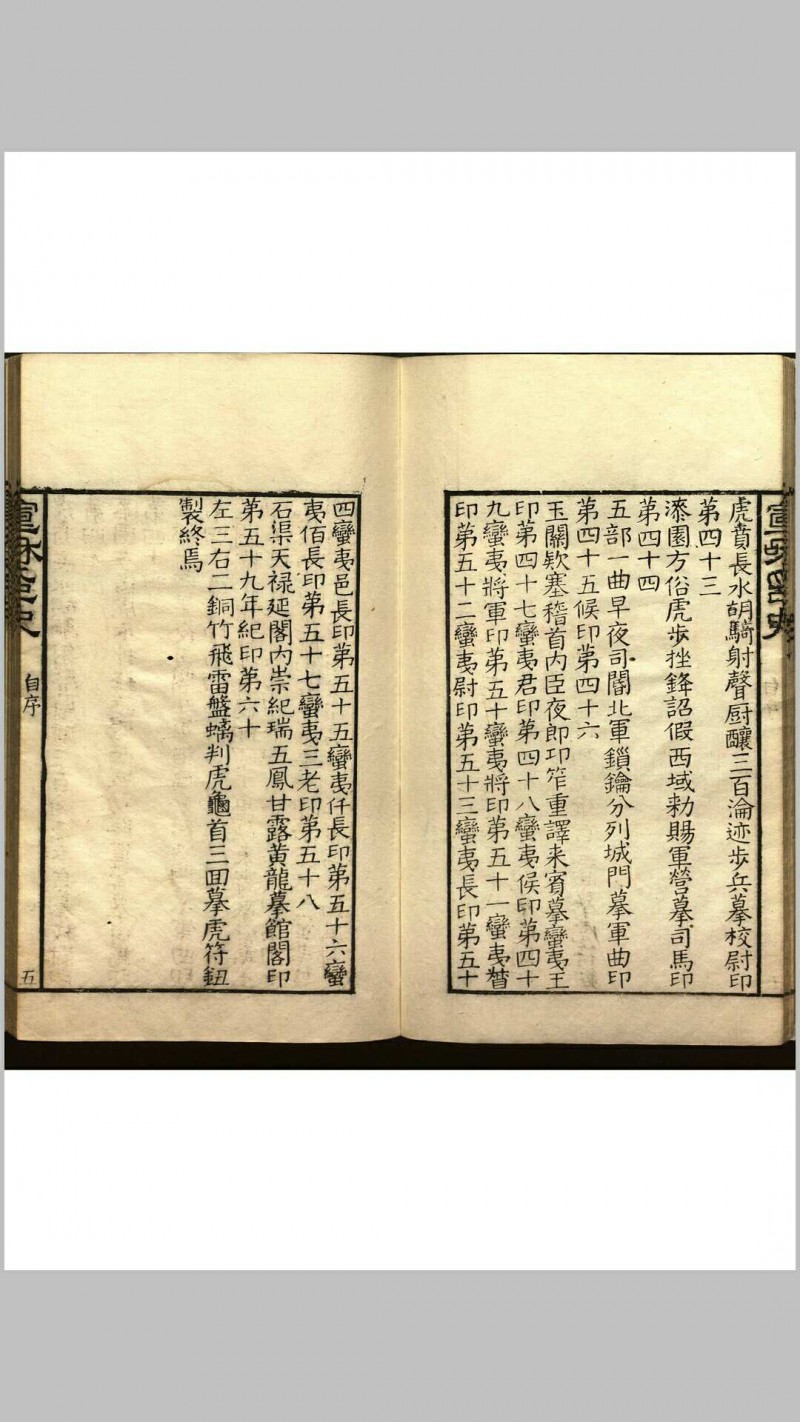 虎賁長水胡騎射聲厨釀三百淪迹步兵摹校尉印
第四十三
漆園方俗虎步挫鋒詔假西域勅賜軍營摹司馬印
第四十四
五部一曲早夜司闇北軍鎖鑰分列城門摹軍曲印
第四十五候印第四十六
玉關欵塞稽首內臣夜郎卭笮重譯来賓摹蠻夷王
印第四十七蠻夷君印第四十八蠻夷侯印第四十
九蠻夷將軍印第五十蠻夷將印第五十一蠻夷督
印第五十二蠻夷尉印第五十三蠻夷長印第五十
四蠻夷邑長印第五十五蠻夷仟長印第五十六蠻
夷佰長印第五十七蠻夷三老印第五十八
石渠天禄延閣內崇紀瑞五鳳甘露黃龍摹館閣印
第五十九年紀印第六十
左三右二銅竹飛雷盤螭判虎龜首三回摹虎符鈕
製終焉
自序
五